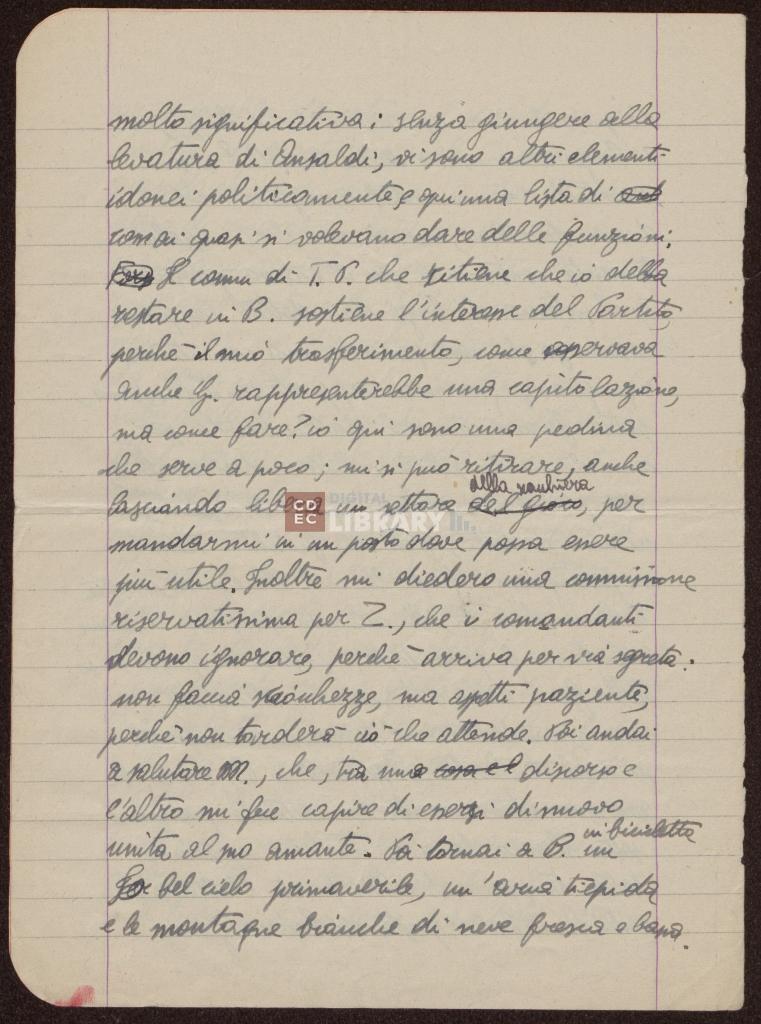 molto significativa: senza giungere alla
levatura di Ansaldi, vi sono altri elementi
idonei politicamente, e qui una lista di
cosa ai quasi si volevano dare delle funzioni.
Il comm di T. P. che ritiene che io debba
restare in B. sostiene l'interesse del Partito,
perché il mio trasferimento, come osservava
anche G. rappresenterebbe una capitolazione,
ma come fare? io qui sono una pedina
che serve a poco; mi si può ritirare, anche
della scacchiera
lasciando libera un del gioco, per
mandarmi in un posto dove possa essere
più utile. Inoltre mi diedero una commissione
riservatissima per Z., che i comandanti
devono ignorare, perché arriva per via segreta:
non faccia sciocchezze, ma aspetti paziente,
perché non tarderà ciò che attende. Poi andai
a salutare M., che, tra un discorso e
l'altro mi fece capire di essersi di nuovo
in bicicletta
unita al suo amante. Poi tornai a B. un
bel cielo primaverile, un'aria tiepida
e le montagne bianche di neve fresca e bassa.
CD
EC
DIGITAL
LIBRARY